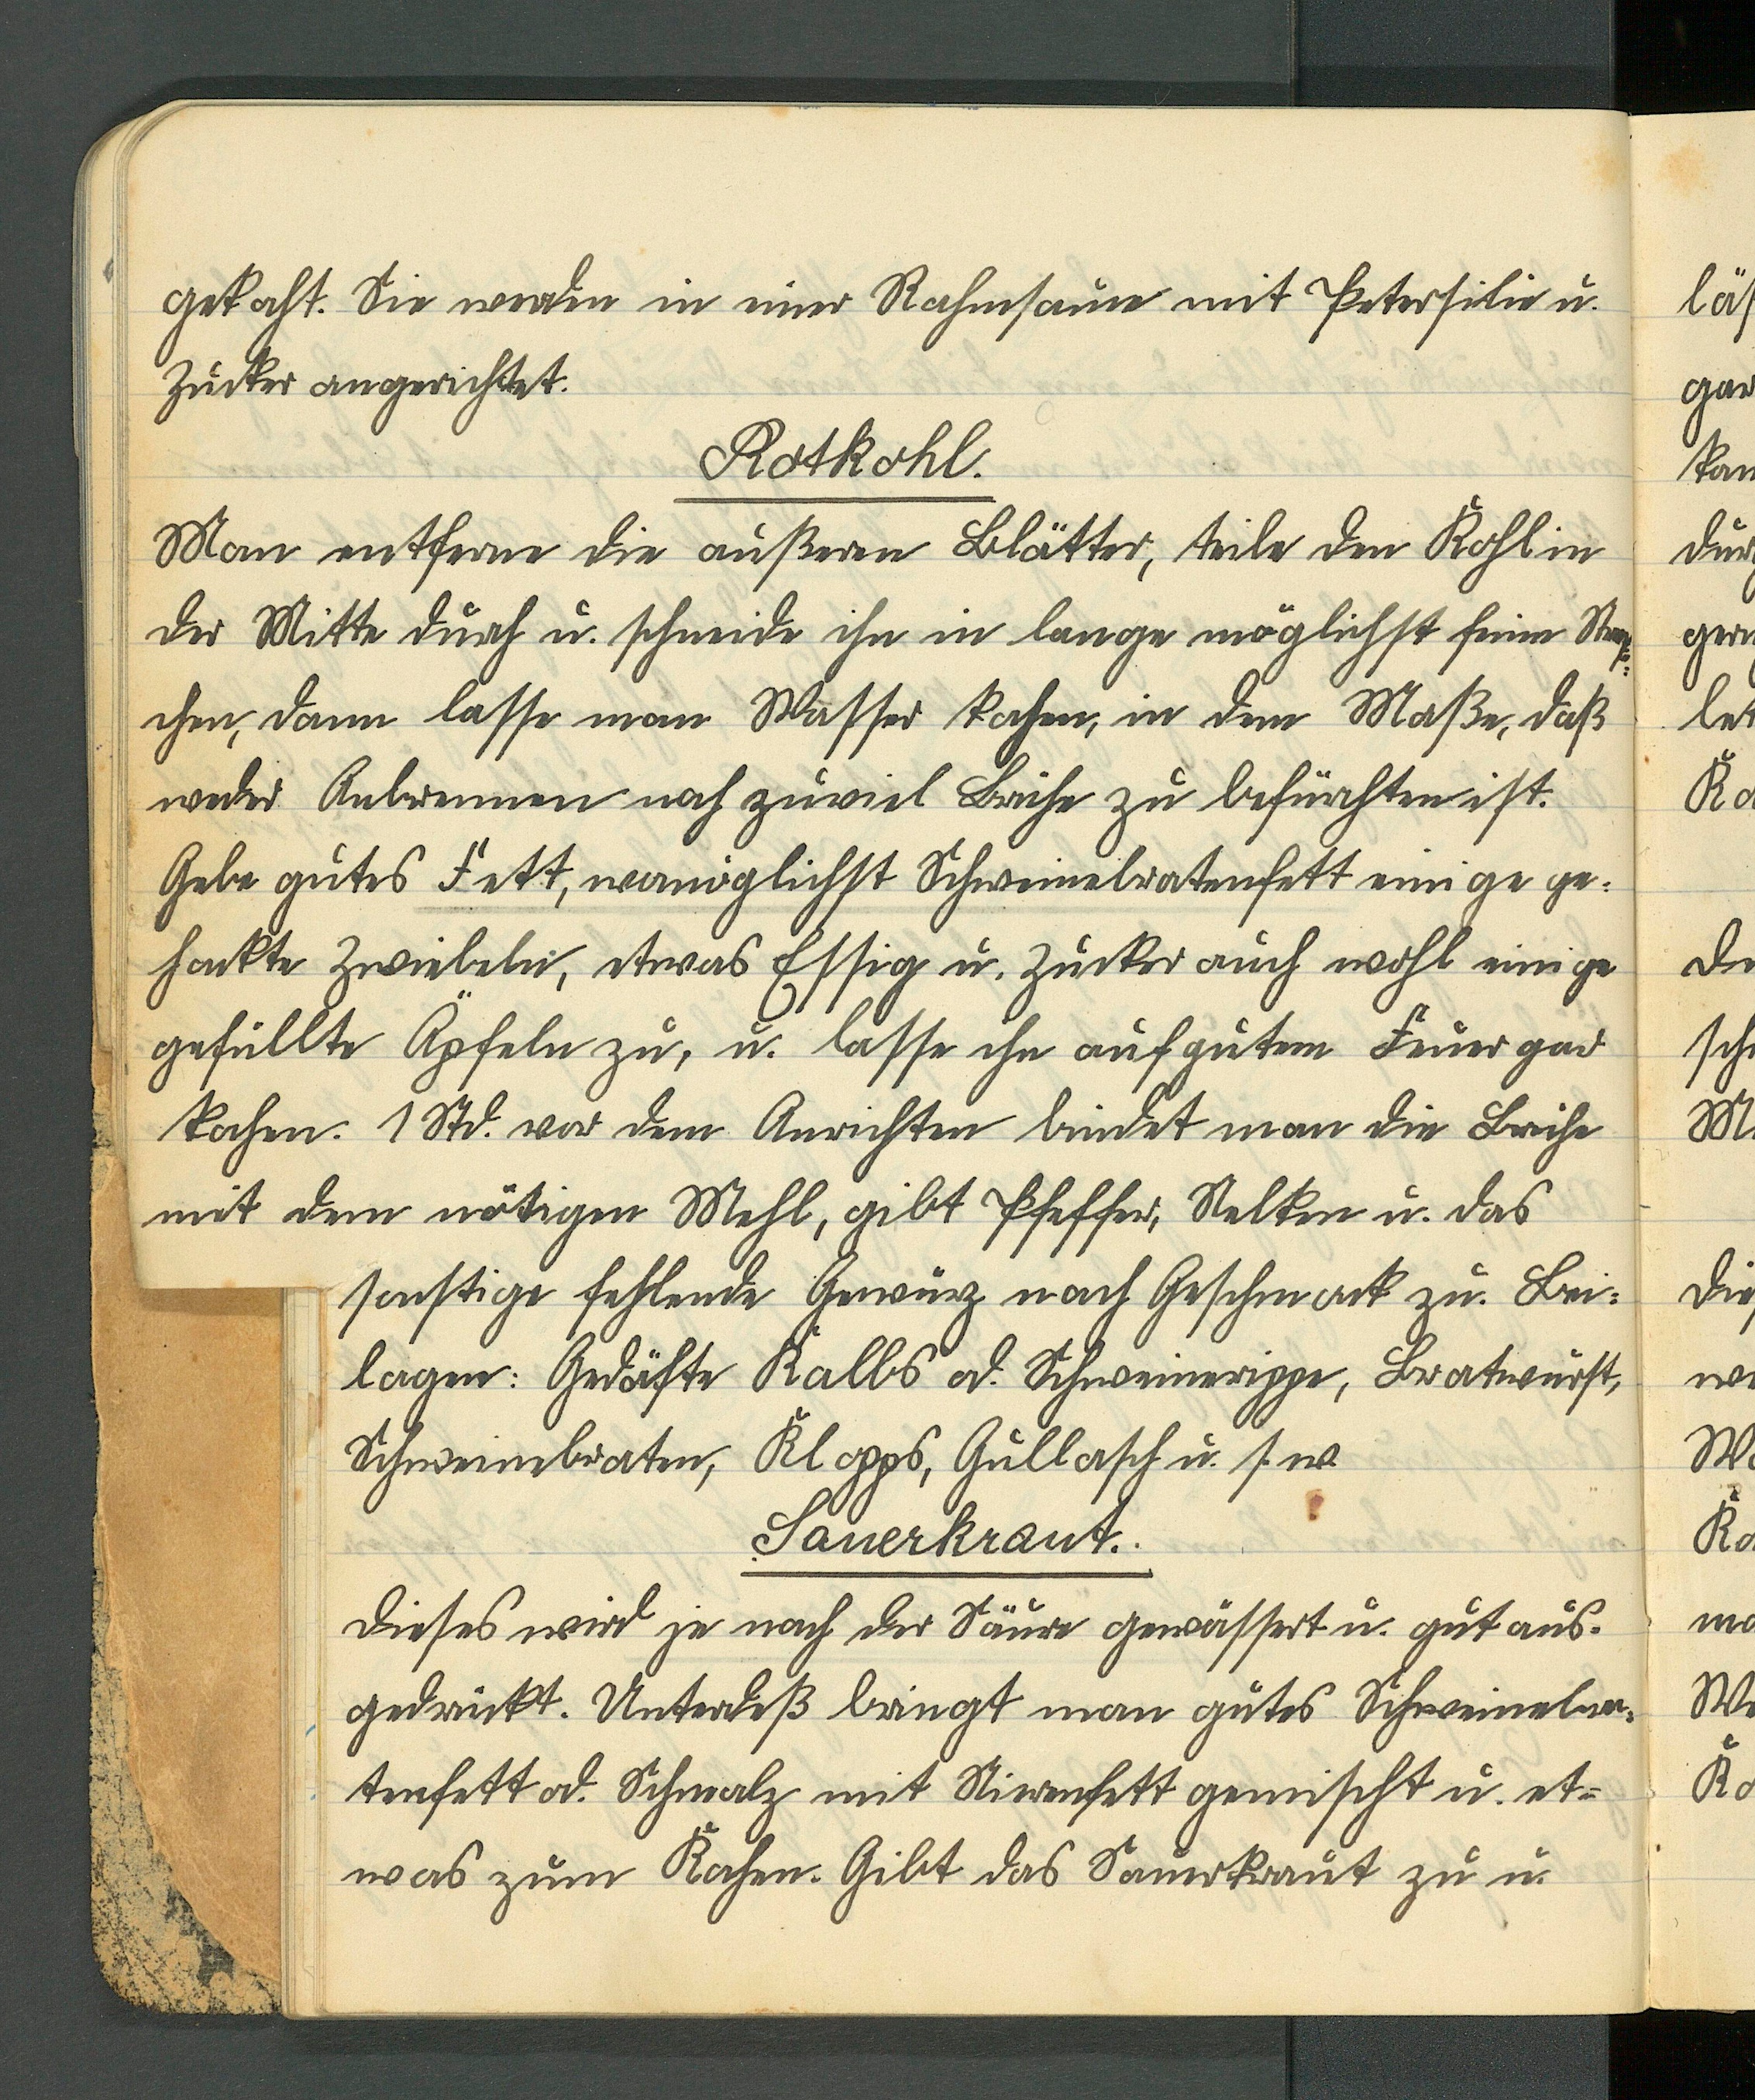 gekocht. Sie werden in einer Rahmsauce mit Petersilie u.
Zucker angerichtet.
Rotkohl.
Man entferne die äußeren Blätter, teile den Kohl in
der Mitte durch u. schneide ihn in lange möglichst feine
chen, dann lasse man Wasser kochen, in dem Maße, daß
weder Anbrennen noch zuviel Brühe zu befürchten ist.
Gebe gutes Fett, womöglichst Schweinebratenfett einige ge-
hackte Zwiebeln, etwas Essig u. Zucker auch wohl einige
gefüllte Äpfeln zu, u. lasse ihn auf gutem Feuer gar
kochen. 1 Std. vor dem Anrichten bindet man die Brühe
mit dem nötigen Mehl, gibt Pfeffer, Nelken u. das
sonstige fehlende Gewürz nach Geschmack zu. Bei-
lagen: Gedäfte Kalbs od. Schweinerippe, Bratwurst,
Schweinebraten, Klopps, Gullasch u. s. w.
Sauerkraut.
Dieses wird je nach der Säure gewässert u. gut aus-
gedrückt. Unterdeß bringt man gutes Schweinebra-
tenfett od. Schmalz mit Nierenfett gemischt u. et-
was zum Kochen. Gibt das Sauerkraut zu u.